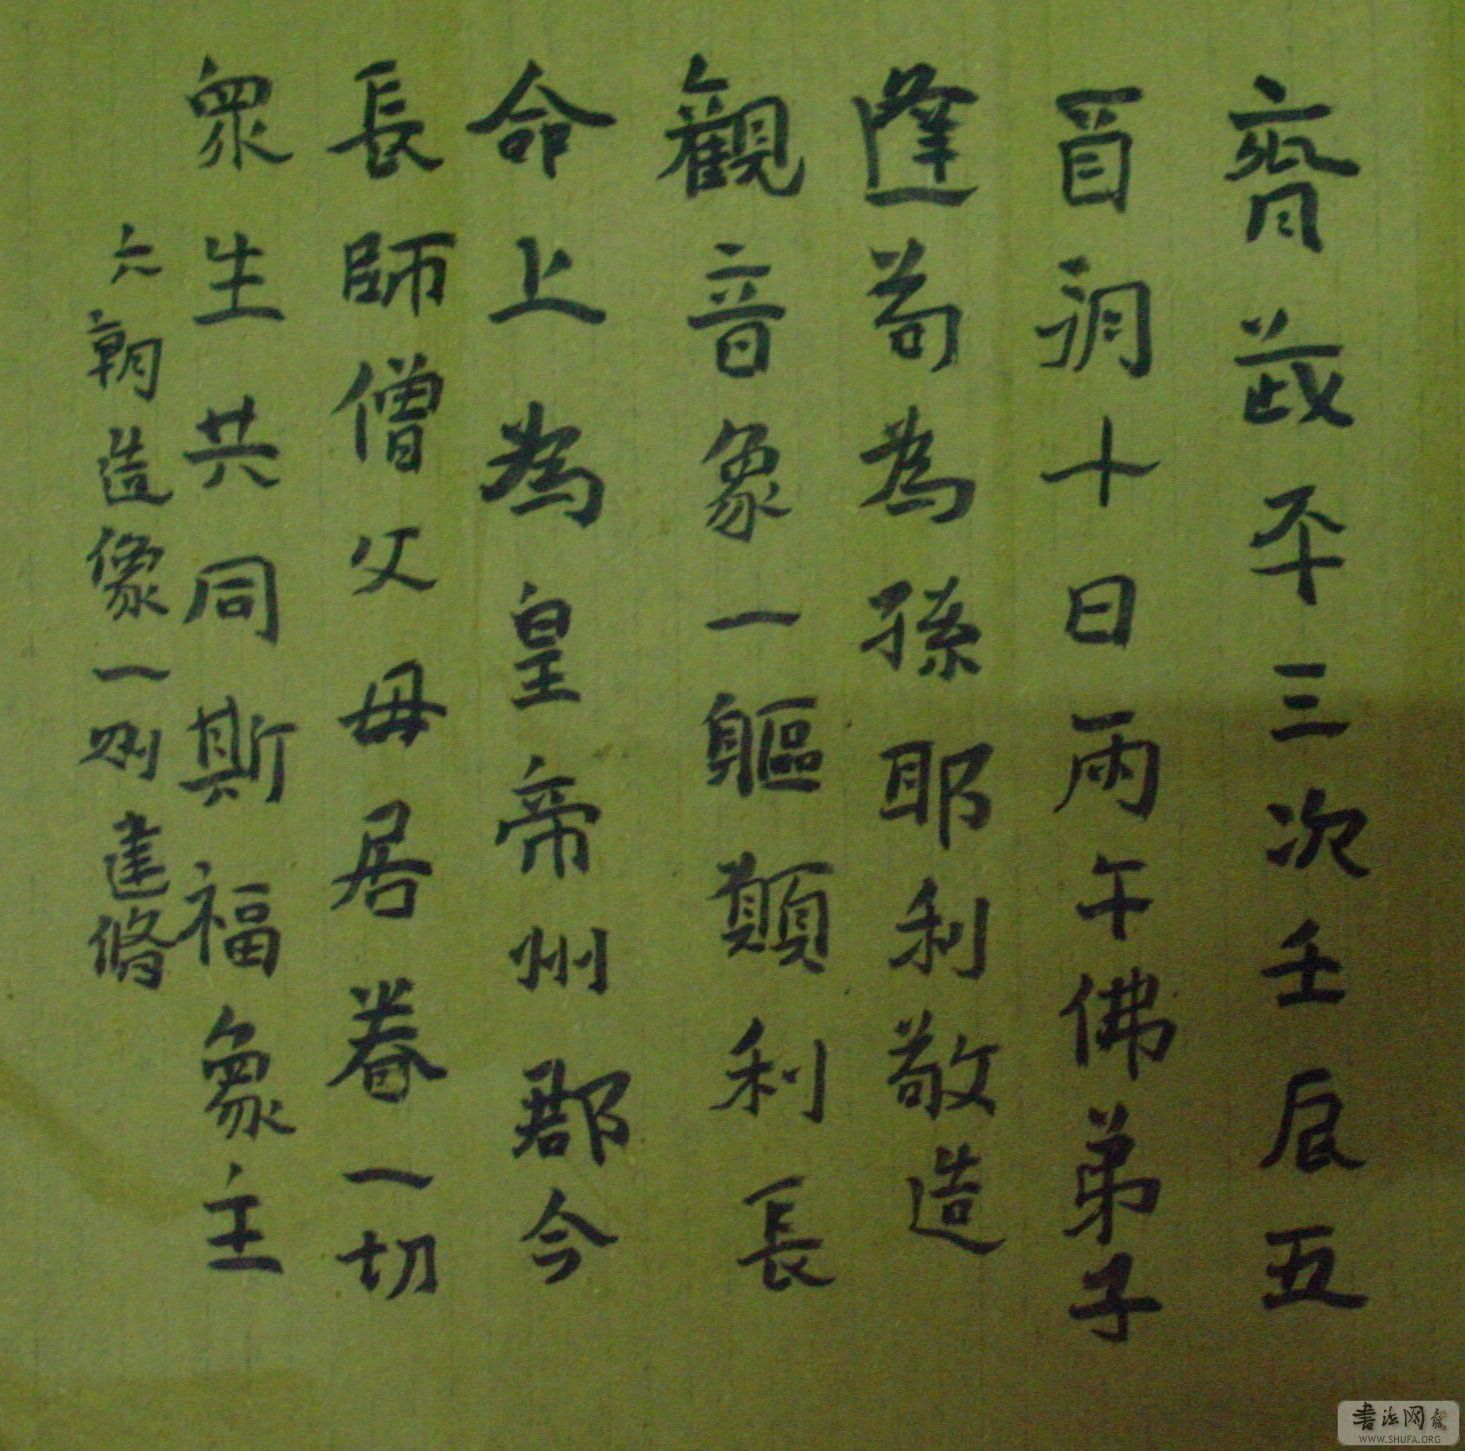 齊歲平三次壬辰五
首朔十日丙午佛弟子
逢苟為孫耶利敬造
觀音象一軀願利長
命上為皇帝州郡令
長師僧父母居眷一切
眾生共同斯福象主
六朝造像一則建脩
書法网
WWW.SHUFA.ORG